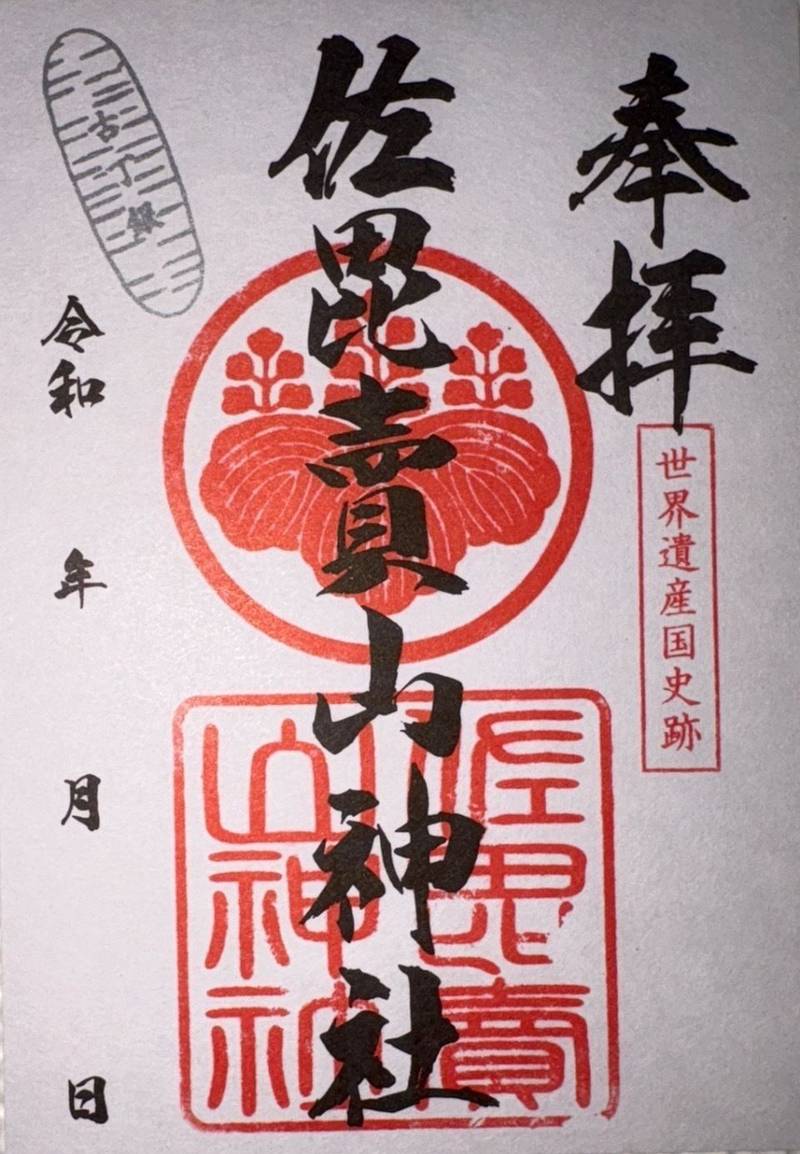 奉拝
世界遺産国史跡
佐毘賣山神社
佐毘賣
山神社
令和 年 月 日
古丁銀